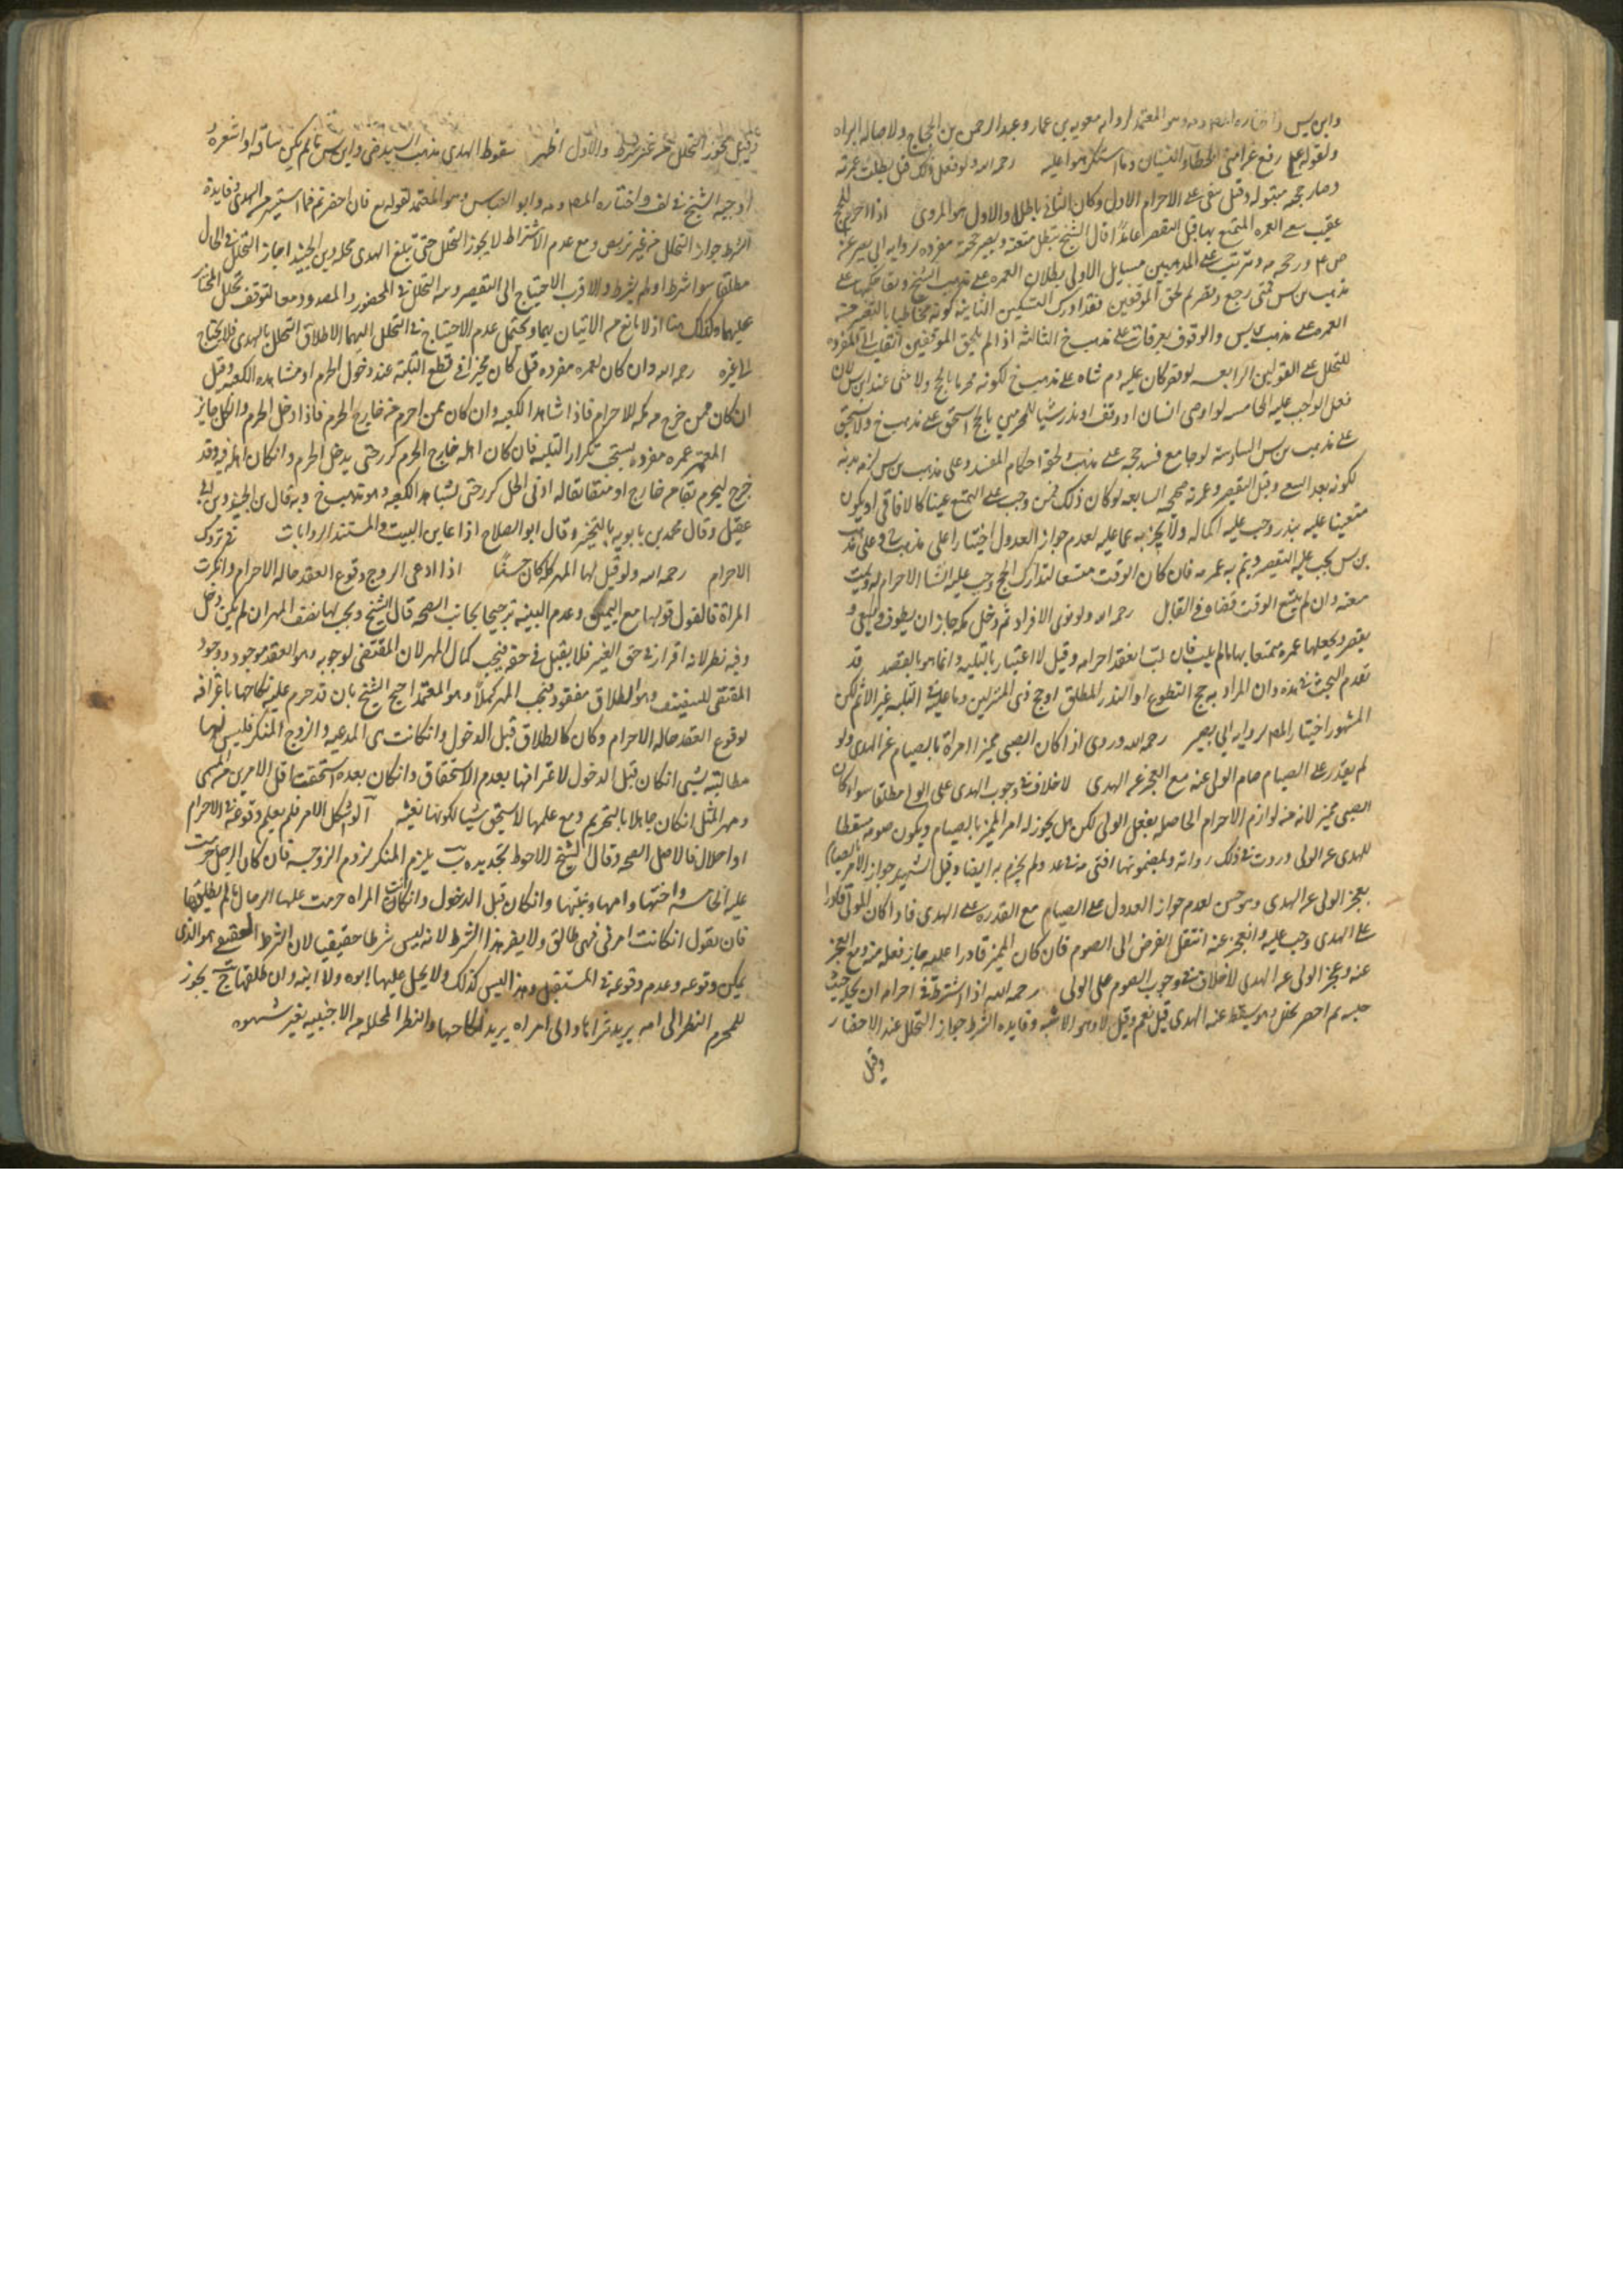 وابن يس واختاره المص وهو المعتمد لروايه معويه بن عمار وعبد الرحمن بن الحجاج ولاصاله البراه
ولقوله ع رفع عن امتى الخطاء والنسيان وما استكرهوا عليه رحمه الله ولو فعل ذلك قيل بطلت عمرته
وصار حجه مبتوله وقيل بقى على الاحرام الاول وكان الثانى باطلا والاول هو المروى اذا احرم بالحج
عقيب سعى العمره المتمتع بها قبل التقصير عامدا قال الشيخ تبطل متعته ويصير حجة مفرده لروايه ابى بصير عن
ص ع ورجحه وتترتب على المذهبين مسايل الاولى بطلان العمره على مذهب الشيخ وبقا حكمها على
مذهب بن س فمتى رجع وقصر ثم لحق الموقفين فقد ادرك النسكين الثانيه كونه مخاطبا بالتقصير من
العمره على مذهب بن س والوقوف بعرفات على مذهب خ الثالثه اذا لم يلحق الموقفين انقلب الى المفرده
للتحلل على القولين الرابعه لو قصر كان عليه دم شاه على مذهب خ لكونه محرما بالحج ولا شى عند ابن س لان
فعل الواجب عليه الخامسه لو اوصى انسان او وقف او نذر شيئا للمحرمين بالحج استحق على مذهب خ ولا يستحق
على مذهب بن س السادسه لو جامع فسد حجه على مذهب ولحقه احكام المفسد وعلى مذهب بن س لزمه بدنه
لكونه بعد السعى وقبل التقصير وعمرته صحيحه السابعه لو كان ذلك ممن وجب عليه التمتع عينا كالافاقى او يكون
متعينا عليه بنذر وجب عليه اكماله ولا يجزيه عما عليه لعدم جواز العدول اختيارا على مذهب خ وعلى مذهب
بن س يجب عليه التقصير ويتم به عمرته فان كان الوقت متسعا لتدارك الحج وجب عليه انشا الاحرام له وتمت
متعته وان لم يتسع الوقت قضاه فى القابل رحمه الله ولو نوى الافراد ثم دخل مكه جاز ان يطوف ويسعى و
يقصر ويجعلها عمره يتمتع بها ما لم يلب فان لبى انعقد احرامه وقيل لا اعتبار بالتلبيه وانما هو بالقصد قد
تقدم البحث فى هذه وان المراد به حج التطوع او النذر المطلق او حج ذى المنزلين وما عليه فى التلبيه غير الاثم لكن
المشهور اختيار المص لروايه ابى بصير رحمه الله وروى اذا كان الصبى مميزا امره بالصيام عن الهدى ولو
لم يقدر على الصيام صام الولى عنه مع العجز عن الهدى لا خلاف فى وجوب الهدى على الولى مطلقا سواء كان
الصبى مميز لانه من لوازم الاحرام الحاصله بفعل الولى لكن هل يجوز له امر المميز بالصيام ويكون صومه مسقطا
للهدى عن الولى وردت فى ذلك روايه وبمضمونها افتى فى عد ولم يجزم به ايضا وقيد الشهيد جواز الامر بالصيام
بعجز الولى عن الهدى وهو حسن لعدم جواز العدول على الصيام مع القدره على الهدى فاذا كان المولى قادرا
على الهدى وجب عليه وان عجز عنه انتقل الفرض الى الصوم فان كان المميز قادرا عليه جاز فعله منه ومع العجز
عنه وعجز الولى عن الهدى لا خلاف فى وجوب الصوم على الولى رحمه الله اذا اشترط فى احرامه ان يحله حيث
حبسه ثم احصر تحلل وهل يسقط عنه الهدى قيل نعم وقيل لا وهو الاشبه وفايده الشرط جواز التحلل عند الاحصار
وقيل
وقيل يجوز التحلل من غير شرط والاول اظهر سقوط الهدى مذهب السيد المرتضى وابن س ما لم يكن ساقه او اشعره و
اوجبه الشيخ فى لف واختاره المص وابو العباس وهو المعتمد لقوله تع فان احصرتم فما استيسر من الهدى وفايدة
الشرط جواز التحلل من غير تربص ومع عدم الاشتراط لا يجوز التحلل حتى يبلغ الهدى محله وبن الجنيد اجاز التحلل فى الحال
مطلقا سوا شرط او لم يشرط والاقرب الاحتياج الى التقصير وبه التحلل فى المحصور والمصدود معا لتوقف تحلل المختار
عليهما وكذلك هنا اذ لا مانع من الاتيان بهما ويحتمل عدم الاحتياج فى التحلل اليهما لاطلاق التحلل بالهدى فلا يحتاج
الى غيره رحمه الله وان كان لعمره مفرده قيل كان مخيرا فى قطع التلبيه عند دخول الحرم او مشاهده الكعبه وقيل
ان كان ممن خرج من مكه للاحرام فاذا شاهد الكعبه وان كان ممن احرم من خارج الحرم فاذا دخل الحرم والكل جايز
المعتمر عمره مفرده يستحب تكرار التلبيه فان كان اهله خارج الحرم كرر حتى يدخل الحرم وان كان اهله فيه وقد
خرج ليحرم بمقام خارج او ميقاتا له ادنى الحل كرر حتى يشاهد الكعبه وهو مذهب خ وبه قال بن الجنيد وبن ابى
عقيل وقال محمد بن بابويه بالتخيير وقال ابو الصلاح اذا عاين البيت والمستند الروايات فى تروك
الاحرام رحمه الله ولو قيل لها المهر كله كان حسنا اذا ادعى الزوج وقوع العقد حاله الاحرام وانكرت
المراة فالقول قولها مع اليمين وعدم البينه ترجيحا لجانب الصحه قال الشيخ ويجب لها نصف المهر ان لم يكن دخل
وفيه نظر لانه اقرار فى حق الغير فلا يقبل فى حقه فيجب كمال المهر لان المقتضى لوجوبه وهو العقد موجود ووجود
المقتضى للتنصيف وهو الطلاق مفقود فيجب المهر كملا وهو المعتمد احتج الشيخ بان قد حرم عليه نكاحها باعترافه
لوقوع العقد حاله الاحرام وكان كالطلاق قبل الدخول وان كانت هى المدعيه والزوج المنكر فليس لها
مطالبته بشى ان كان قبل الدخول لاعترافها بعدم الاستحقاق وان كان بعده استحقت اقل الامرين من المسمى
ومهر المثل ان كان جاهلا بالتحريم ومع علمها لا يستحق شيئا لكونها بغيه آ لو اشكل الامر فلم يعلم وقوعه فى الاحرام
او احلال فالاصل الصحه وقال الشيخ الاحوط تجديده ب يلزم المنكر لزوم الزوجيه فان كان الرجل حرمت
عليه الخامسه واختها وامها وبنتها وان كان قبل الدخول وان كانت المراه حرمت عليها الرجال ما لم يطلقها
فان يقول ان كانت امرتى فهى طالق ولا يضر هذا الشرط لانه ليس شرطا حقيقيا لان الشرط الحقيقى هو الذى
يمكن وقوعه وعدم وقوعه فى المستقبل وهذا ليس كذلك ولا يحل عليها ابوه ولا ابنه وان طلقها ج يجوز
للمحرم النظر الى امه يريد شراها والى امراه يريد نكاحها والنظر المحلله من الاجنبيه بغير شهوه